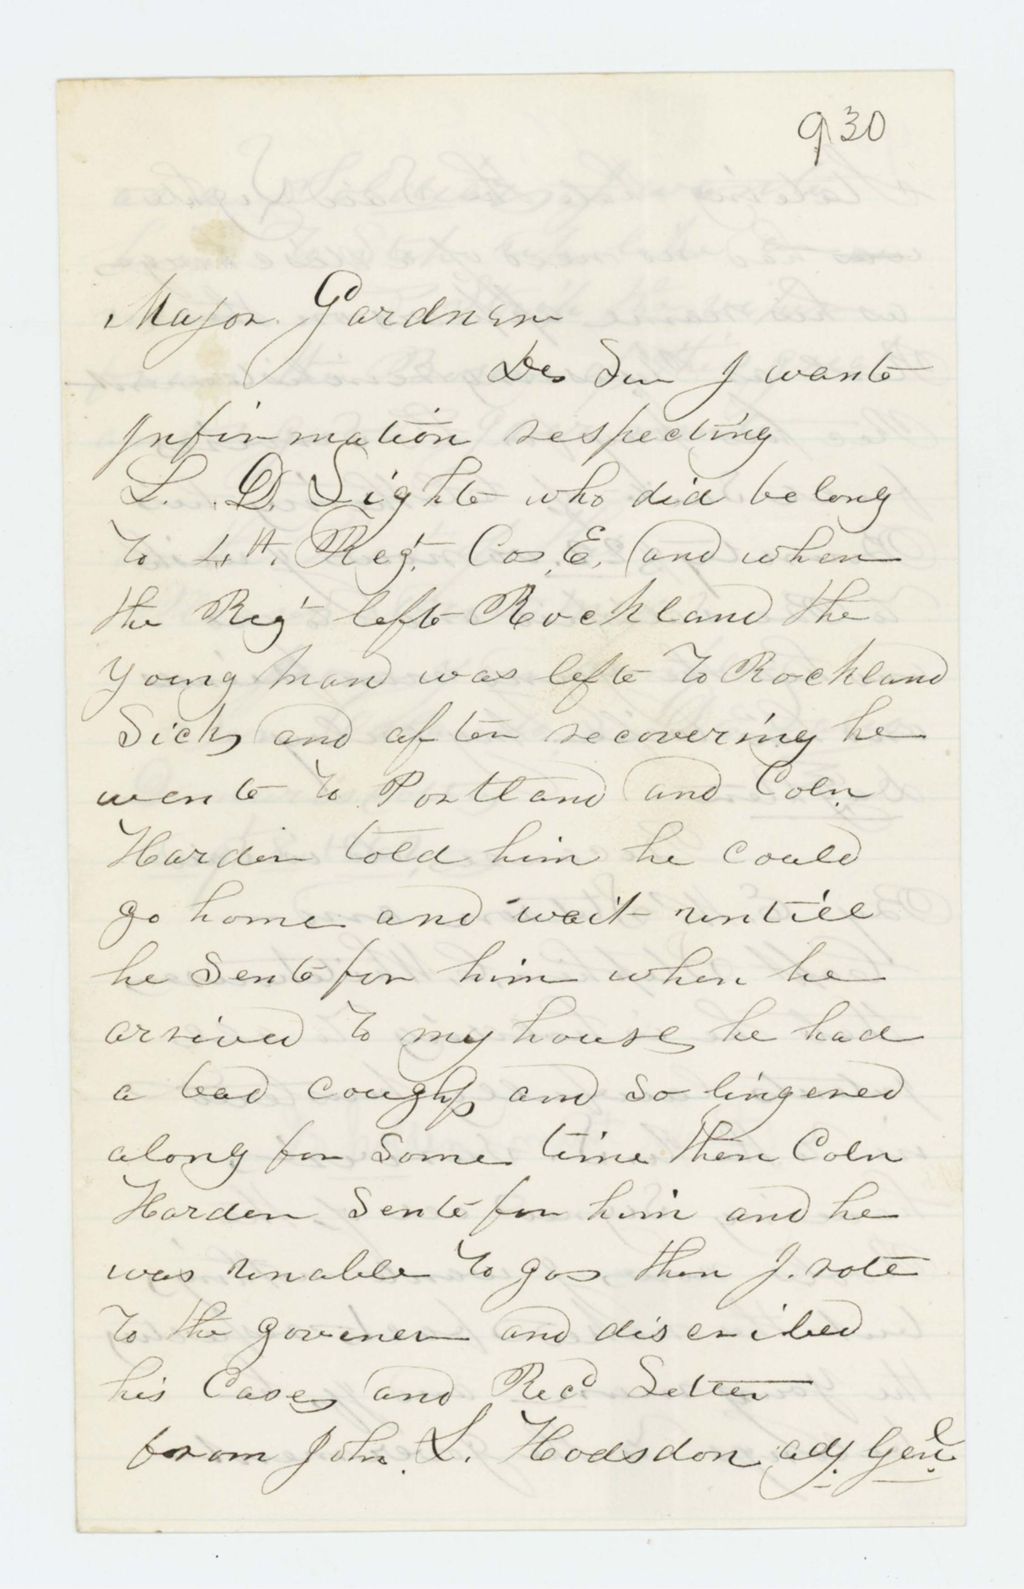 930
Major Gardner
Der Sur I wante
Infirmation respecting
L. D. Lighte who did belong
to 4th Regt Co. E. and when
the Regt lefte Rockland the
young man was lefte to Rockland
Sick and after recovering he
wente to Portland and Coln
Harden told him he could
go home and wait untill
he Sente for him when he
arrived to my house he had
a bad cough and so lingered
along for Some time then Coln
Harden Sente for him and he
was unable to go then I. rote
to the govener and discribed
his Case and Recd Letter
from John. L. Hodsdon adj Genl